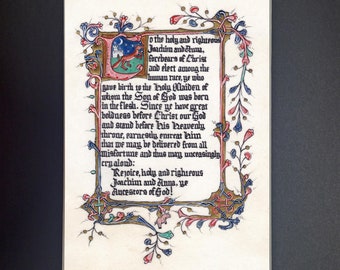 To the holy and righteous
Joachim and Anna,
forebears of Christ
and elect among the
human race, ye who
gave birth to the Holy Maiden of
whom the Son of God was born
in the flesh. Since ye have great
boldness before Christ our God
and stand before His heavenly
throne, earnestly entreat Him
that we may be delivered from all
misfortune and thus may unceasingly
cry aloud:
Rejoice, holy and righteous
Joachim and Anna, ye
Ancestors of God!